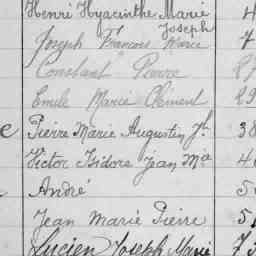 Henri Hyacinthe Marie 4
Joseph
Joseph François Marie 7
Constant Pierre
Emile Marie Clément 29
e Pierre Marie Augustin Jh 38
Victor Isidore Jean Mie 4
André 5
Jean Marie Pierre 5
Lucien Joseph Marie 73